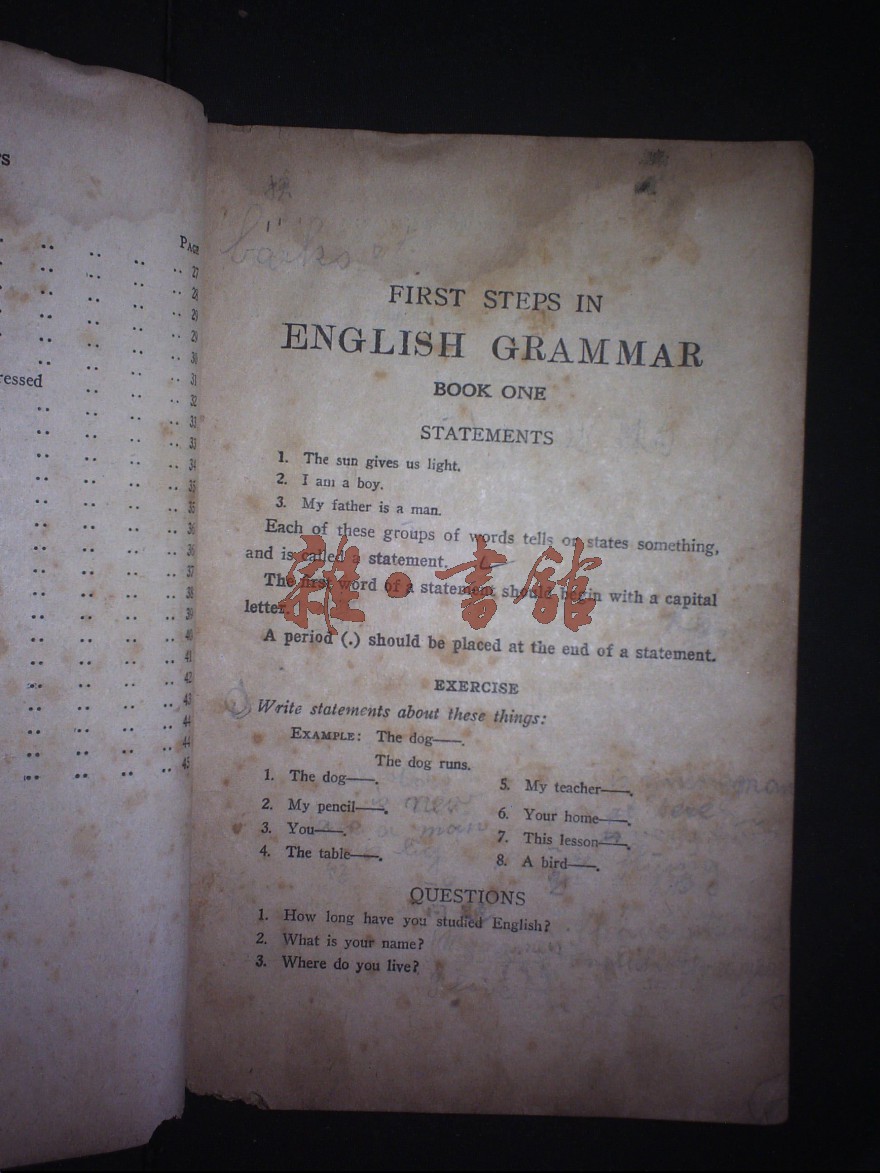 PAGE
27
28
29
29
30
31
ressed
32
33
33
34
35
35
36
36
37
38
39
40
41
42
43
44
44
45
"barks"
FIRST STEPS IN
ENGLISH GRAMMAR
BOOK ONE
STATEMENTS
1. The sun gives us light.
2. I am a boy.
3. My father is a man.
Each of these groups of words tells or states something,
and is called a statement.
The first word of a statement should begin with a capital
letter.
A period (.) should be placed at the end of a statement.
雜·書館
EXERCISE
Write statements about these things:
EXAMPLE: The dog——.
The dog runs.
1. The dog——.
2. My pencil——. is new
3. You——. man
4. The table——.
5. My teacher——.
6. Your home——.
7. This lesson——.
8. A bird——.
QUESTIONS
1. How long have you studied English?
2. What is your name?
3. Where do you live?